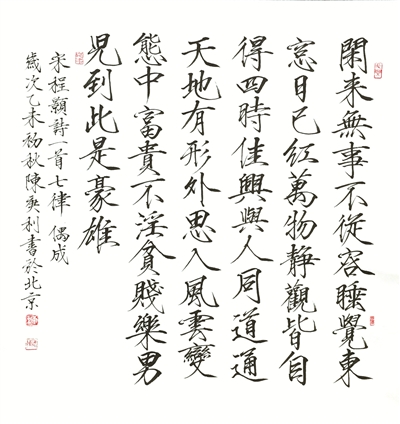 閑来無事不從容睡覺東
窓日已紅萬物静觀皆自
得四時佳興與人同道通
天地有形外思入風雲變
態中富貴不淫貧賤樂男
兒到此是豪雄
宋程顥詩一首七律 偶成
歲次乙未初秋陳利書於北京